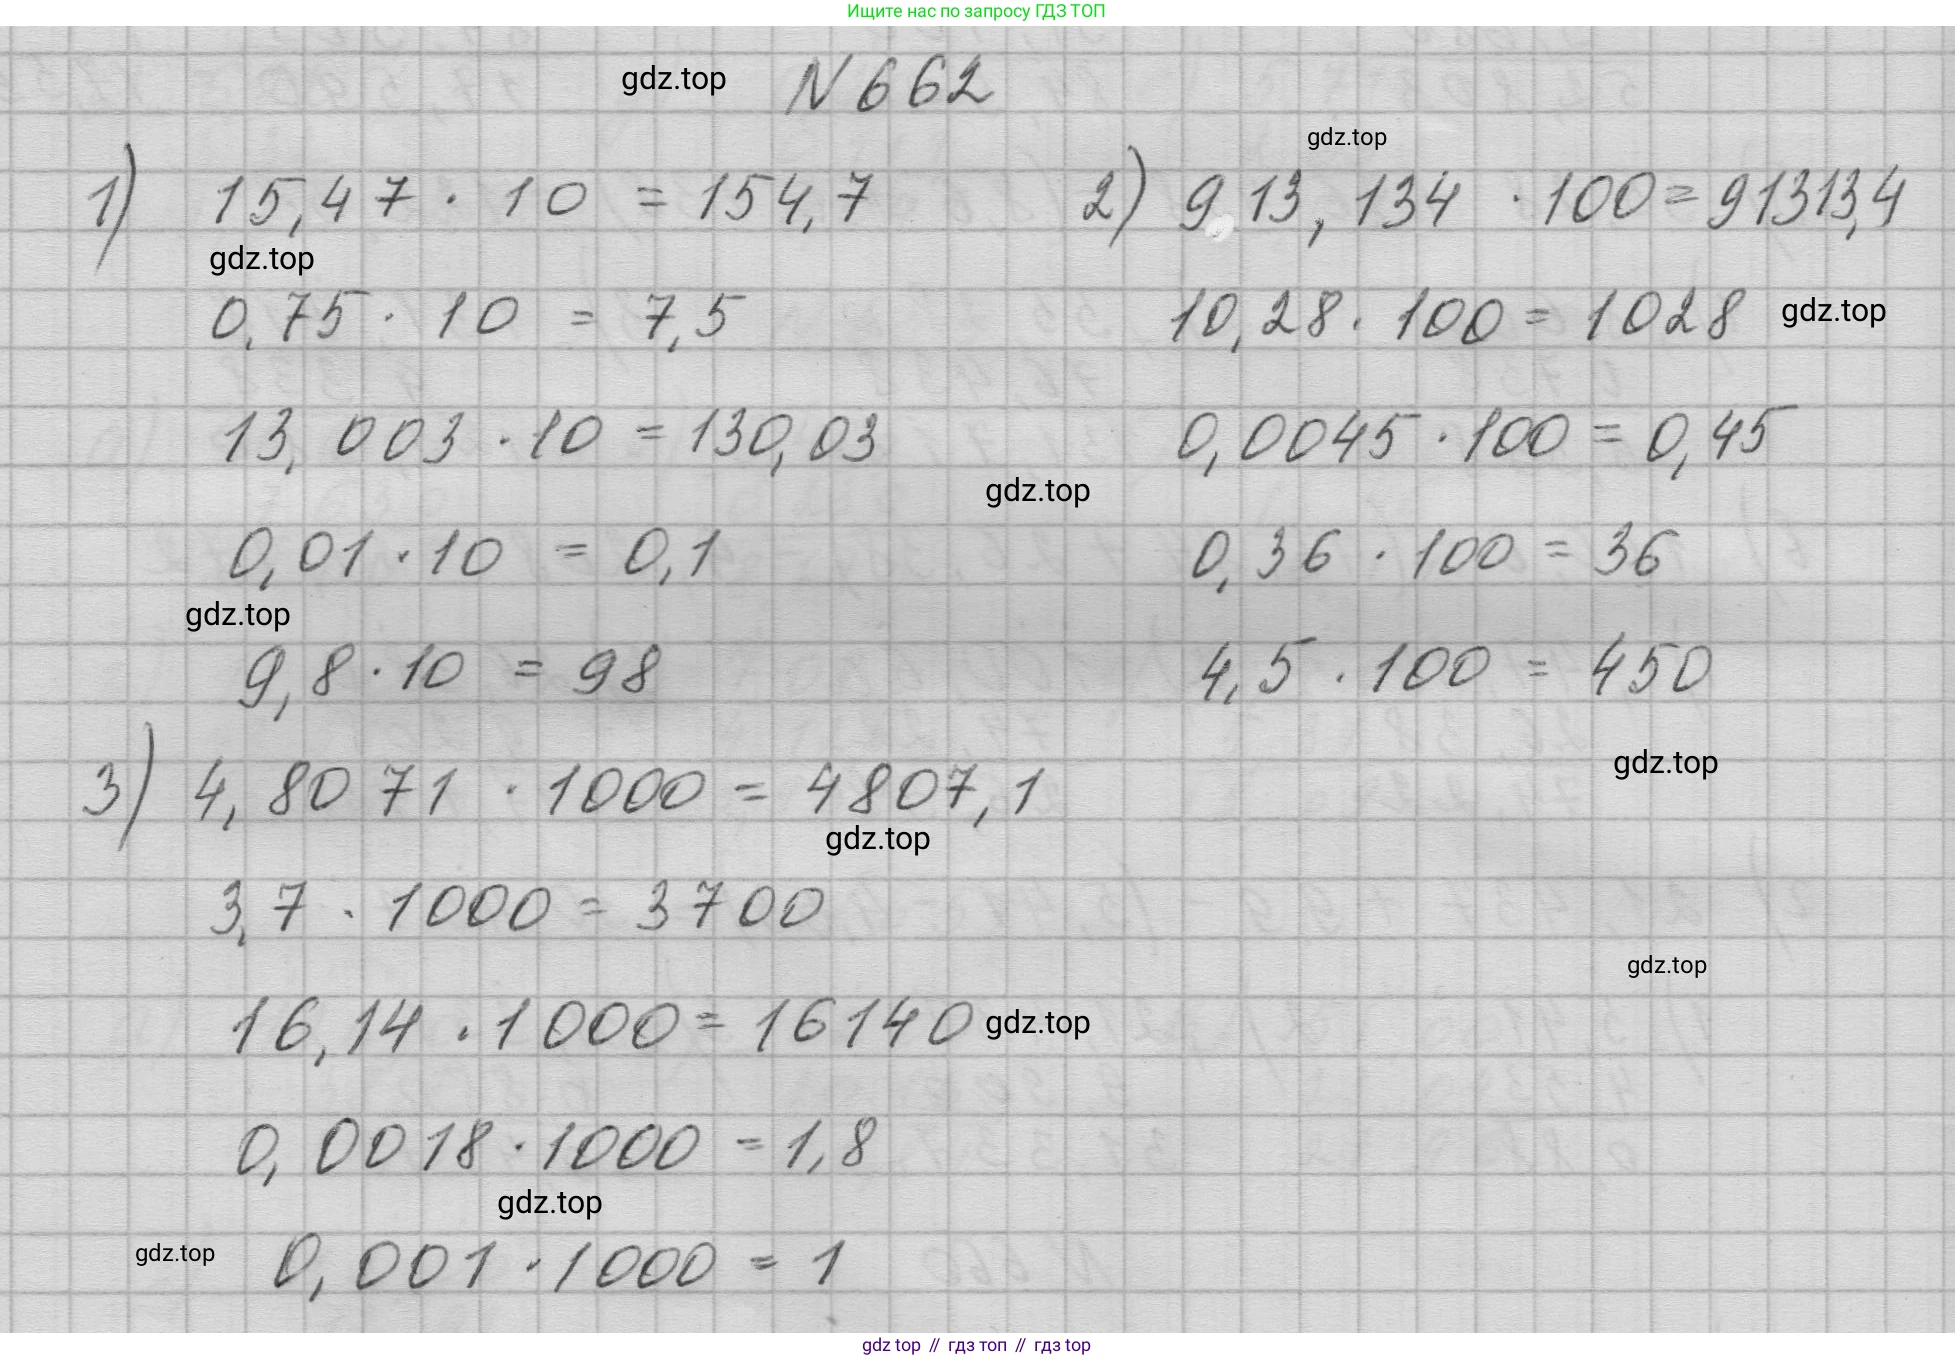 Ищите нас по запросу ГДЗ ТОП
gdz.top
N 662
gdz.top
1) 15,47 · 10 = 154,7
2) 913,134 · 100 = 91313,4
gdz.top
0,75 · 10 = 7,5
10,28 · 100 = 1028
gdz.top
13,003 · 10 = 130,03
0,0045 · 100 = 0,45
gdz.top
0,01 · 10 = 0,1
0,36 · 100 = 36
gdz.top
9,8 · 10 = 98
4,5 · 100 = 450
gdz.top
3) 4,8071 · 1000 = 4807,1
gdz.top
3,7 · 1000 = 3700
gdz.top
16,14 · 1000 = 16140
gdz.top
0,0018 · 1000 = 1,8
gdz.top
gdz.top
0,001 · 1000 = 1
gdz top // гдз топ // гдз top